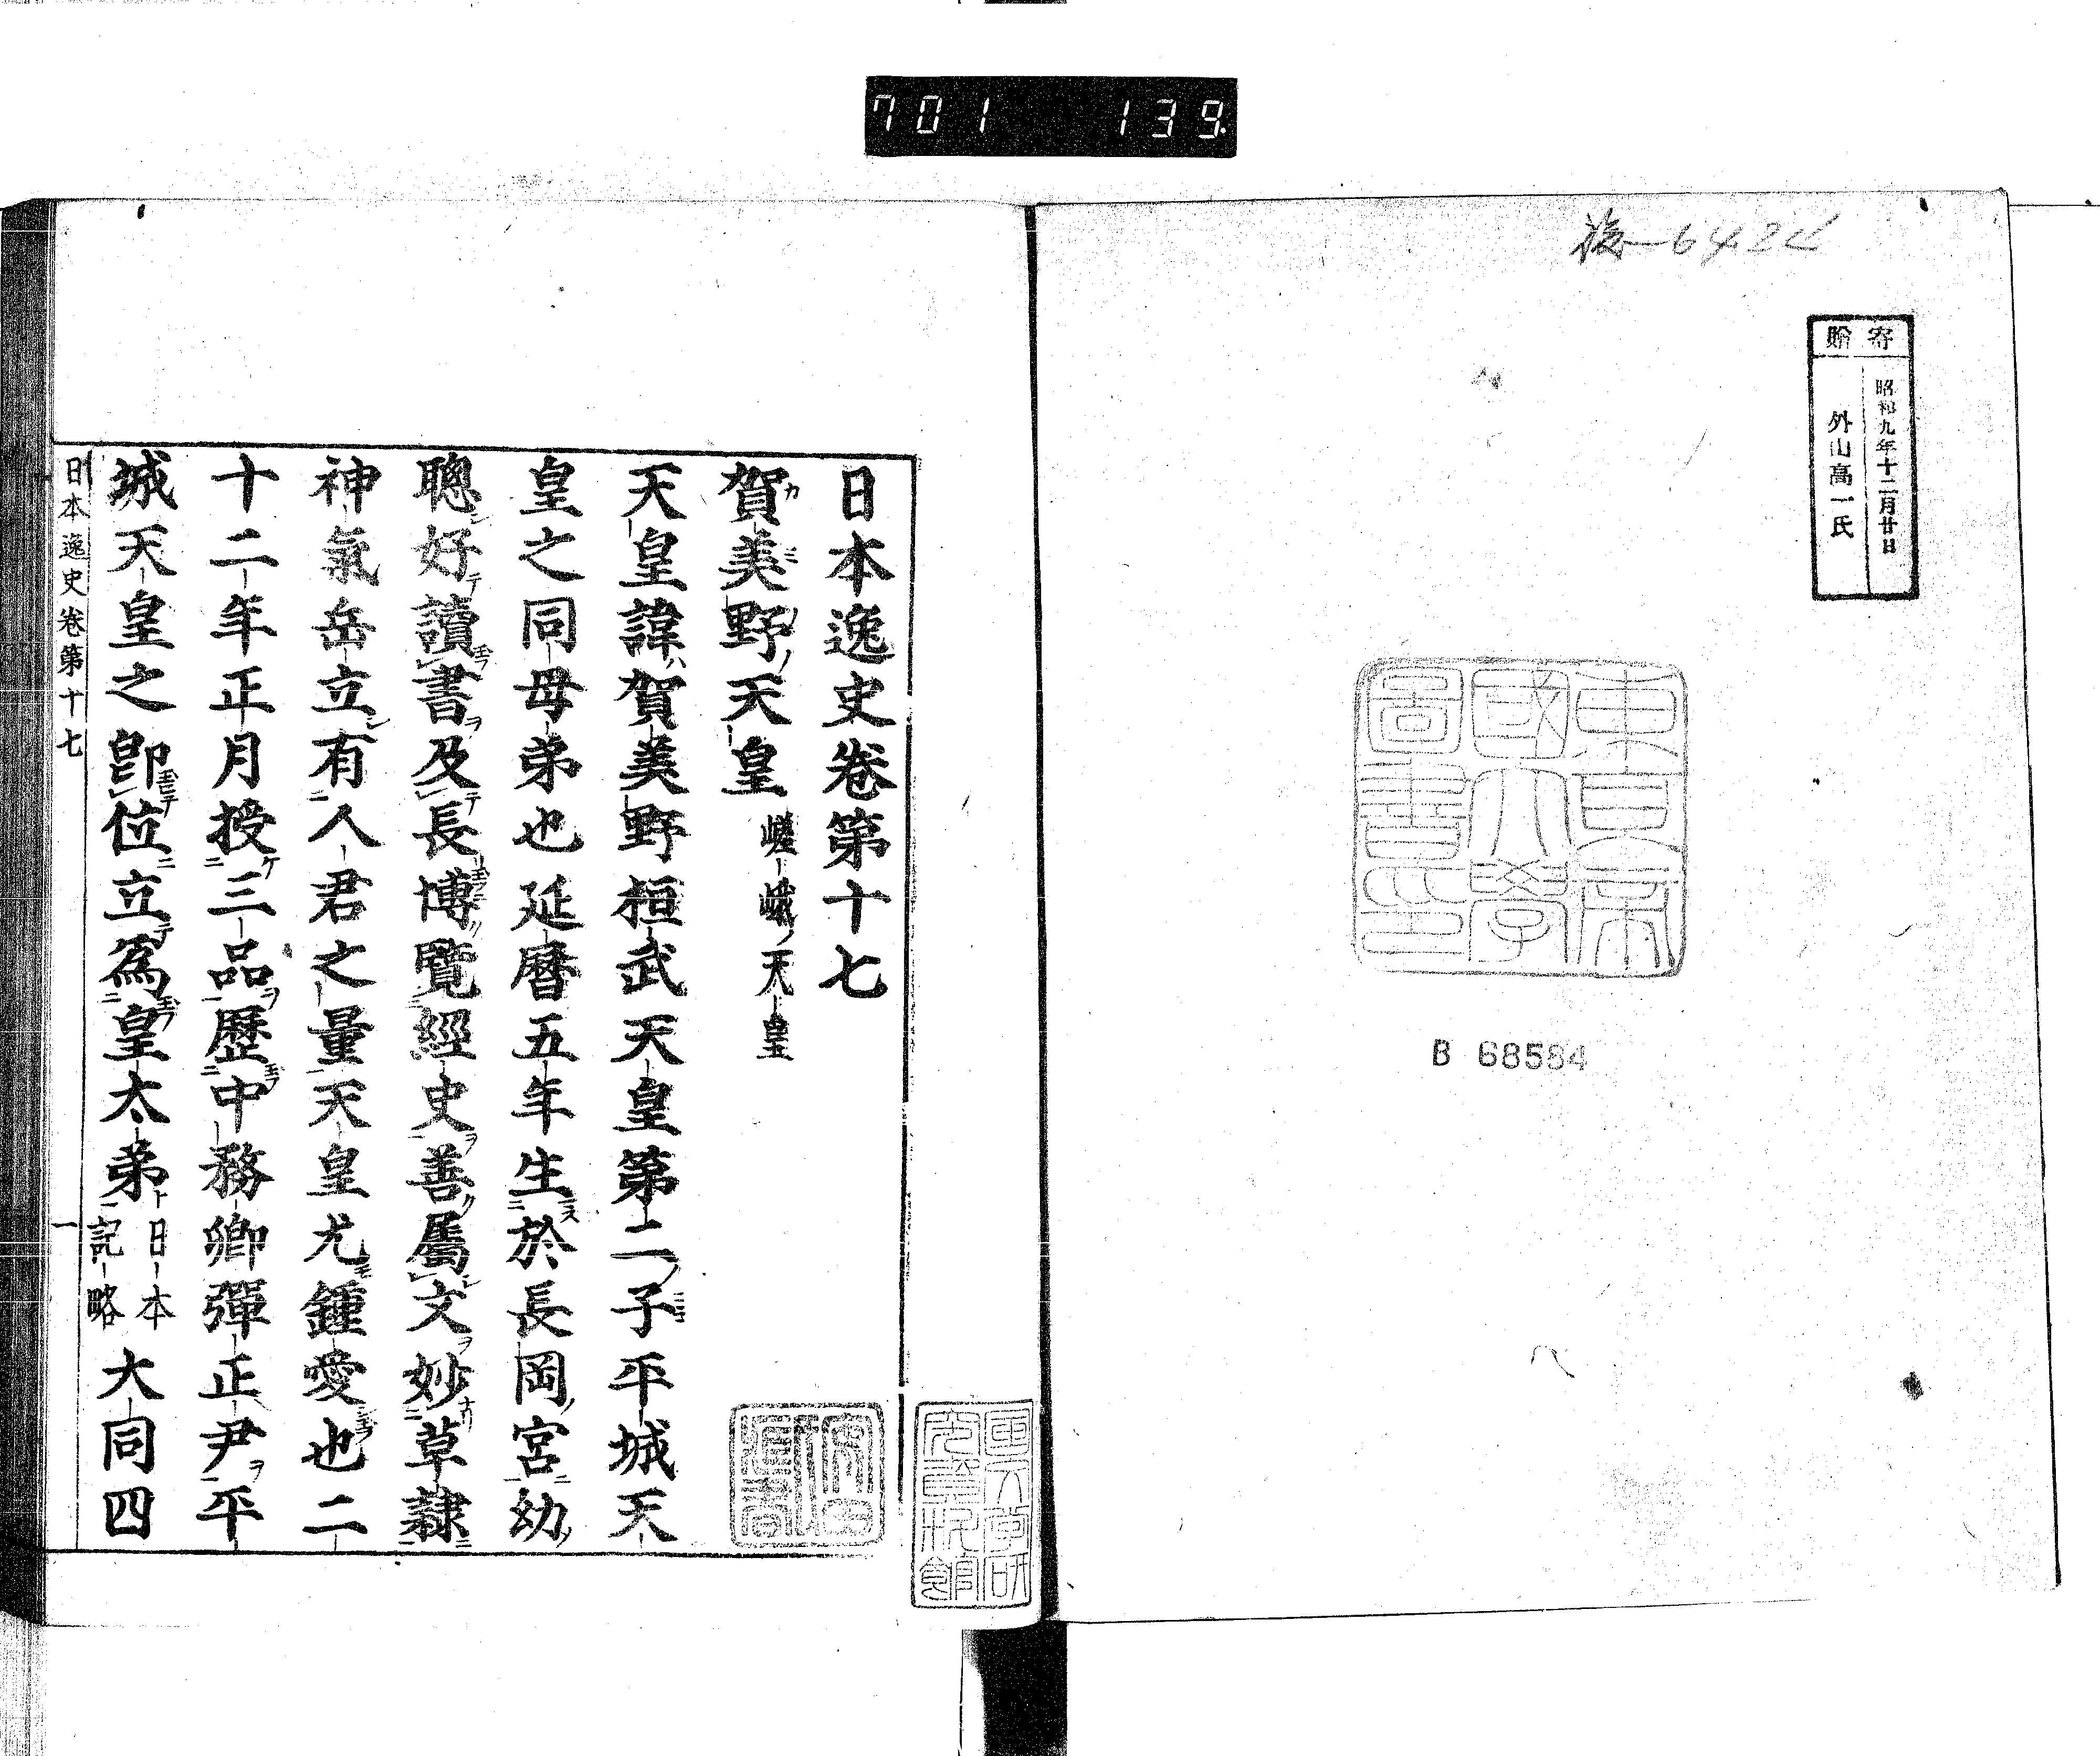 701 139.
後-642
寄贈
昭和九年十二月廿日
外山高一氏
東京帝
國大學
圖書印
B 68584
日本逸史卷第十七
賀美野天皇 嵯峨天皇
天皇諱賀美野桓武天皇第二子平城天
皇之同母弟也延曆五年生於長岡宮幼
聰好讀書及長博覽經史善屬文妙草隸
神氣岳立有人君之量天皇尤鍾愛也二
十二年正月授三品歷中務卿彈正尹平
城天皇之卽位立爲皇太弟 日本記略 大同四
日本逸史卷第十七 一
國文學研
究資料館